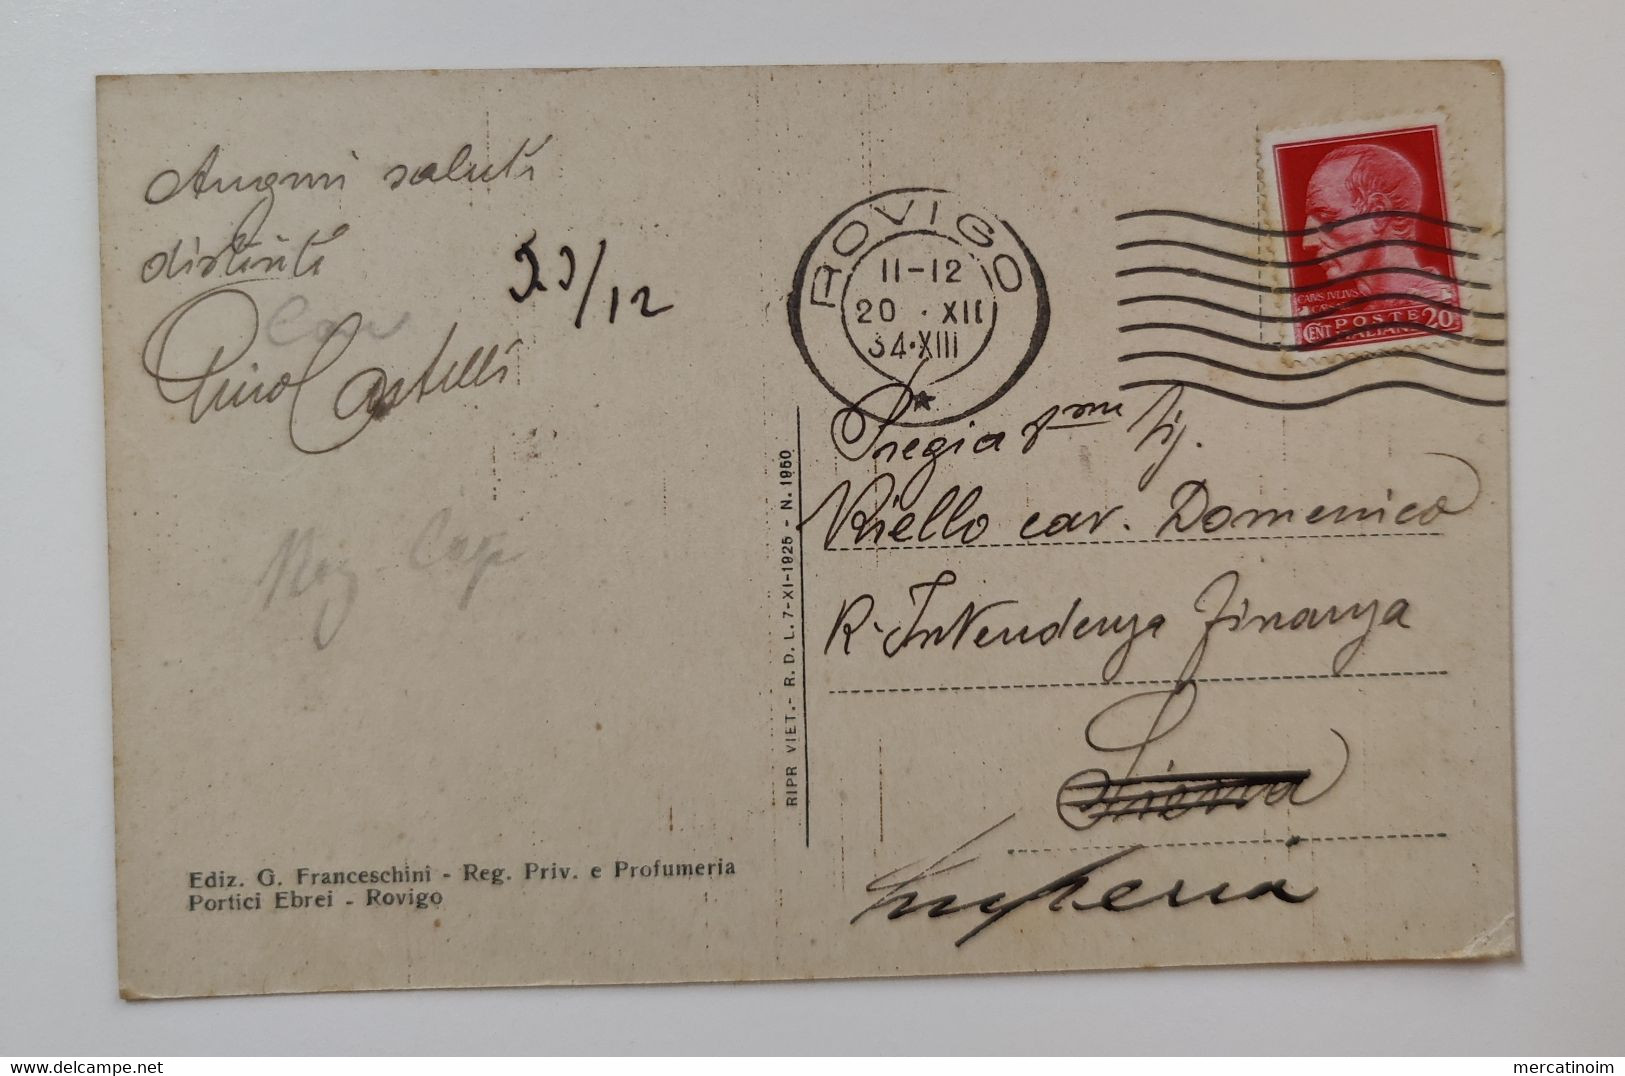 Auguri saluti
distinti
Cav
Pino Castelli
/12
Rag. Cap
ROVIGO
11-12
20 · XII
34·XIII
CAIVS·IVLIVS
CENT POSTE 20
ITALIANE
Pregia &mo Sig.
Riello cav. Domenico
R. Intendenza Finanza
Siena
Imperia
RIPR VIET. - R. D. L. 7-XI-1925 - N. 1950
Ediz. G. Franceschini - Reg. Priv. e Profumeria
Portici Ebrei - Rovigo
delcampe.net
mercatinoim